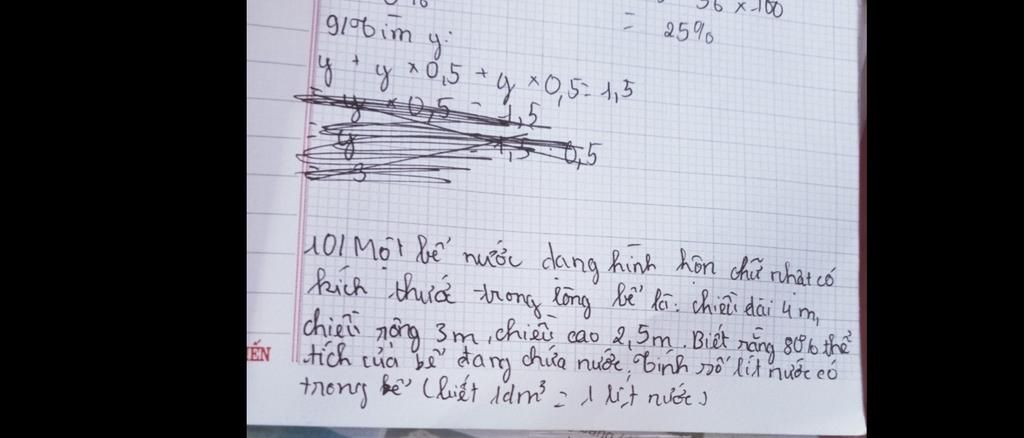 36 × 100
= 25%
9/ Tìm y:
y + y × 0,5 + y × 0,5 = 1,5
= y × 0,5 = 1,5
= y = 1,5 : 0,5
= 3
10/ Một bể nước dang hình hôn chữ nhât có
kích thướć trong lồng bể là: chiều dài 4m,
chiều rộng 3m, chiều cao 2,5m. Biết rằng 80% thể
ẾN
tích của bể đang chứa nước. Tính số lít nước có
trong bể (biết 1dm³ = 1 lít nước)